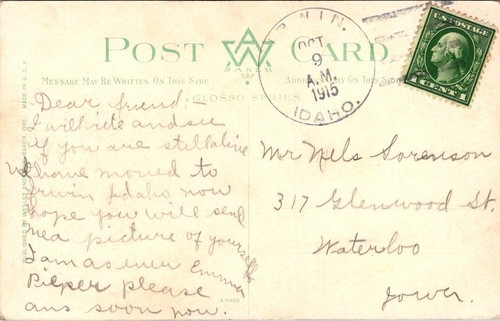 POST CARD
BAKER
MESSAGE MAY BE WRITTEN ON THIS SIDE
GLOSSO SERIES
IRWIN.
OCT
9
A.M.
1915
IDAHO.
U.S. POSTAGE
1 CENT 1
Dear friend:-
I will rite and see
if you are still alive
We have moved to
Irwin Idaho now
hope you will send
me a picture of yourself
I am as ever Emma
Pieper please
ans soon now.
Mr Nels Sorenson
317 Glenwood St.
Waterloo
Iowa.
MADE IN U.S.A.